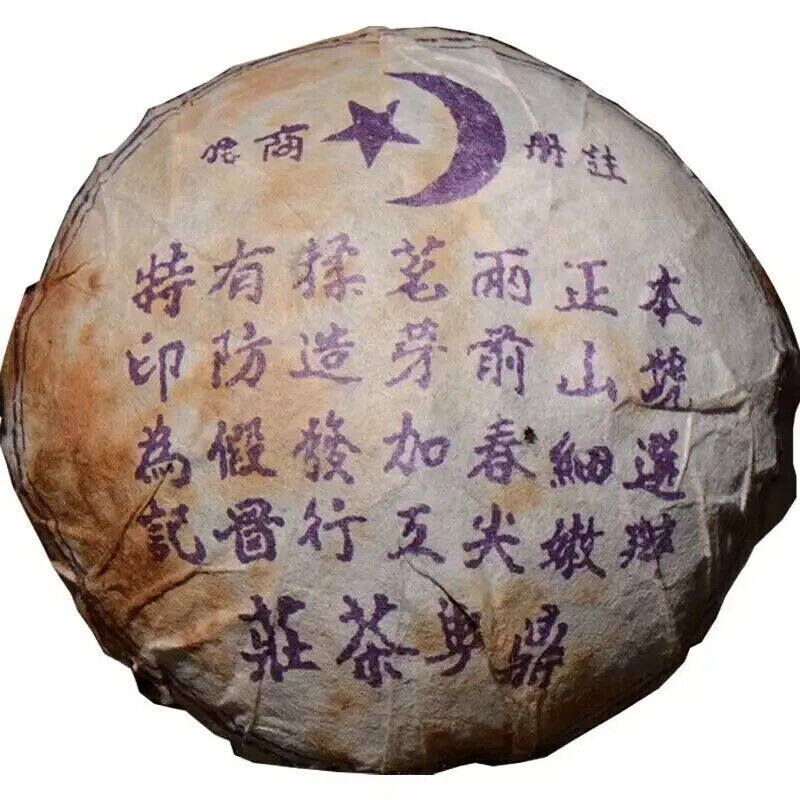 註册商
本號選辦
正山細嫩
雨前春尖
茗芽加工
揉造發行
有防假
特印為記
鼎興茶莊